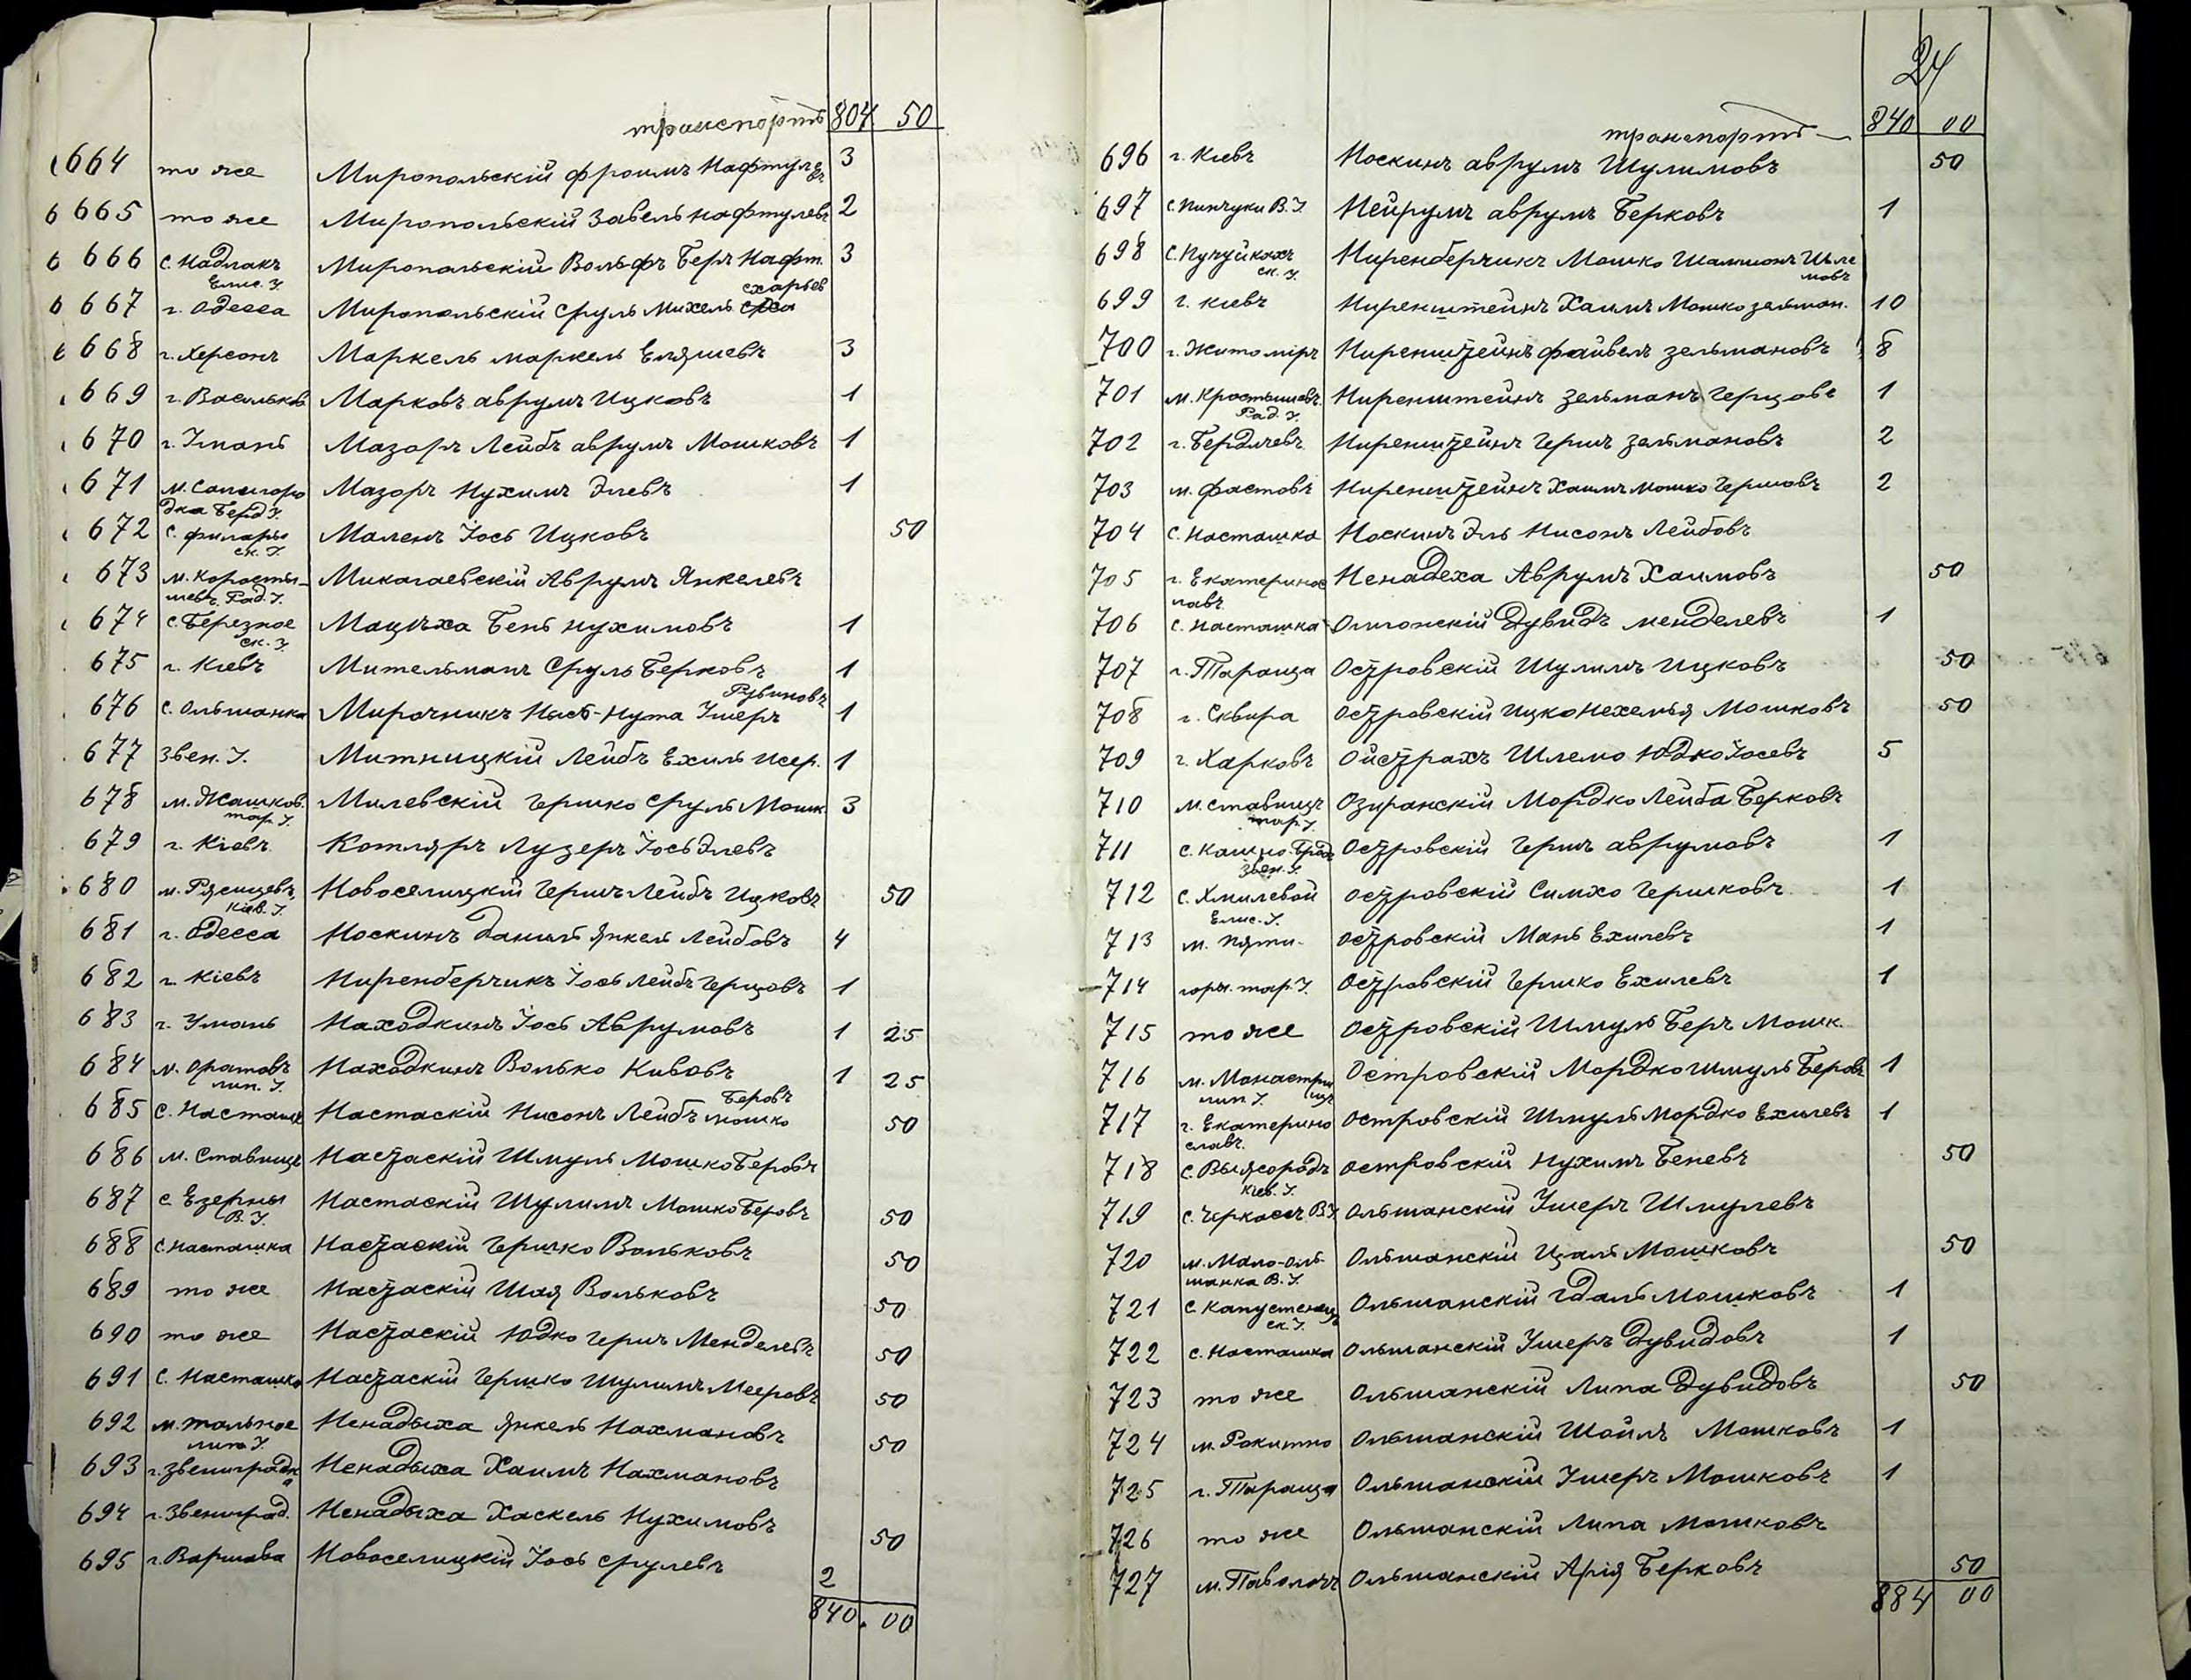 транспортъ 804 50
664 то же Миропольскій Фроимъ Нафтулевъ 3
665 то же Миропольскій Завель Нафтулевъ 2
666 с. Надлакъ Елис. У. Миропольскій Вольфъ Беръ Нафт. 3
667 г. Одесса Миропольскій Сруль Михель
668 г. Херсонъ Маркель Маркель Еляшевъ 3
669 г. Васильков Марковъ Аврумъ Ицковъ 1
670 г. Умань Мазоръ Лейбъ Аврумъ Мошковъ 1
671 м. Самгородка Берд. У. Мазоръ Нухимъ Элевъ 1
672 с. ск. У. Маленъ Іось Ицковъ 50
673 м. Коростышевъ Рад. У. Микагаевскій Аврумъ Янкелевъ
674 с. Березное ск. У. Мацѣха Бень Нухимовъ 1
675 г. Кіевъ Мительманъ Сруль Берковъ 1
676 с. Ольшанка Мирочникъ Нысь-Нута Ушеръ Рувиновъ 1
677 Звен. У. Митницкій Лейбъ Ехиль Исер. 1
678 м. Жашков. тар. У. Милевскій Гершко Сруль Мошк. 3
679 г. Кіевъ Котляръ Лузеръ Іось Элевъ
680 м. Ржищевъ Кіев. У. Новоселицкій Гершъ Лейбъ Ицковъ 50
681 г. Одесса Носкинъ Даниль Янкель Лейбовъ 4
682 г. Кіевъ Ниренберчикъ Іось Лейбъ Герцовъ 1
683 г. Умань Находкинъ Іось Аврумовъ 1 25
684 м. Оратовъ лип. У. Находкинъ Волько Кивовъ 1 25
685 с. Насташк Настаскій Нисонъ Лейбъ Мошко Беровъ 50
686 м. Ставище Настаскій Шмуль Мошко Беровъ
687 с. Езерны В. У. Настаскій Шулимъ Мошко Беровъ 50
688 с. Насташка Настаскій Гершко Вольковъ 50
689 то же Настаскій Шая Вольковъ 50
690 то же Настаскій Юдко Гершъ Менделевъ 50
691 с. Насташка Настаскій Гершко Шулимъ Мееровъ 50
692 м. Тальное лип. У. Ненадыха Янкель Нахмановъ 50
693 г. Звенигродка Ненадыха Хаимъ Нахмановъ
694 г. Звениград. Ненадыха Хаскель Нухимовъ 50
695 г. Варшава Новоселицкій Іось Срулевъ 2
840. 00
24
транспортъ 840 00
696 г. Кіевъ Носкинъ Аврумъ Шулимовъ 50
697 с. Пинчуки В. У. Нейрумъ Аврумъ Берковъ 1
698 с. Пугуйкахъ ск. У. Ниренберчикъ Мошко Шамшонъ Шлемовъ
699 г. Кіевъ Ниренштейнъ Хаимъ Мошко Зельман. 10
700 г. Житоміръ Ниренштейнъ Файвель Зельмановъ 8
701 м. Кростышевъ. Рад. У. Ниренштейнъ Зельманъ Герцовъ 1
702 г. Бердичевъ Ниренштейнъ Гершъ Зельмановъ 2
703 м. Фастовъ Ниренштейнъ Хаимъ Мошко Гершовъ 2
704 с. Насташка Носкинъ Эль Нисонъ Лейбовъ
705 г. Екатеринославъ Ненадеха Аврумъ Хаимовъ 50
706 с. Насташка Олигонскій Дувидъ Менделевъ 1
707 г. Тараща Островскій Шулимъ Ицковъ 50
708 г. Сквира Островскій Ицко Нехемья Мошковъ 50
709 г. Харковъ Ойстрахъ Шлемо Юдко Іосевъ 5
710 м. Ставище тар. У. Озиранскій Мордко Лейба Берковъ
711 с. Звен. У. Островскій Гершъ Аврумовъ 1
712 с. Хмилевой Елис. У. Островскій Симхо Гершковъ 1
713 м. Пяти- Островскій Мань Ехилевъ 1
714 горы. тар. У. Островскій Гершко Ехилевъ 1
715 то же Островскій Шмуль Беръ Мошк.
716 м. Монастрищъ лип У. Островскій Мордко Шмуль Беровъ 1
717 г. Екатеринославъ. Островскій Шмуль Мордко Ехилевъ 1
718 с. Вышгородъ Кіев. У. Островскій Нухимъ Беневъ 50
719 с. Черкасъ В У Ольшанскій Ушеръ Шмулевъ
720 м. Мало-Ольшанка В. У. Ольшанскій Цаль Мошковъ 50
721 с. Капустенцъ ск. У. Ольшанскій Гдаль Мошковъ 1
722 с. Насташка Ольшанскій Ушеръ Дувидовъ 1
723 то же Ольшанскій Липа Дувидовъ 50
724 м. Рокитно Ольшанскій Шойлъ Мошковъ 1
725 г. Тараща Ольшанскій Ушеръ Мошковъ 1
726 то же Ольшанскій Липа Мошковъ
727 м. Паволочъ Ольшанскій Арія Берковъ 50
884 00